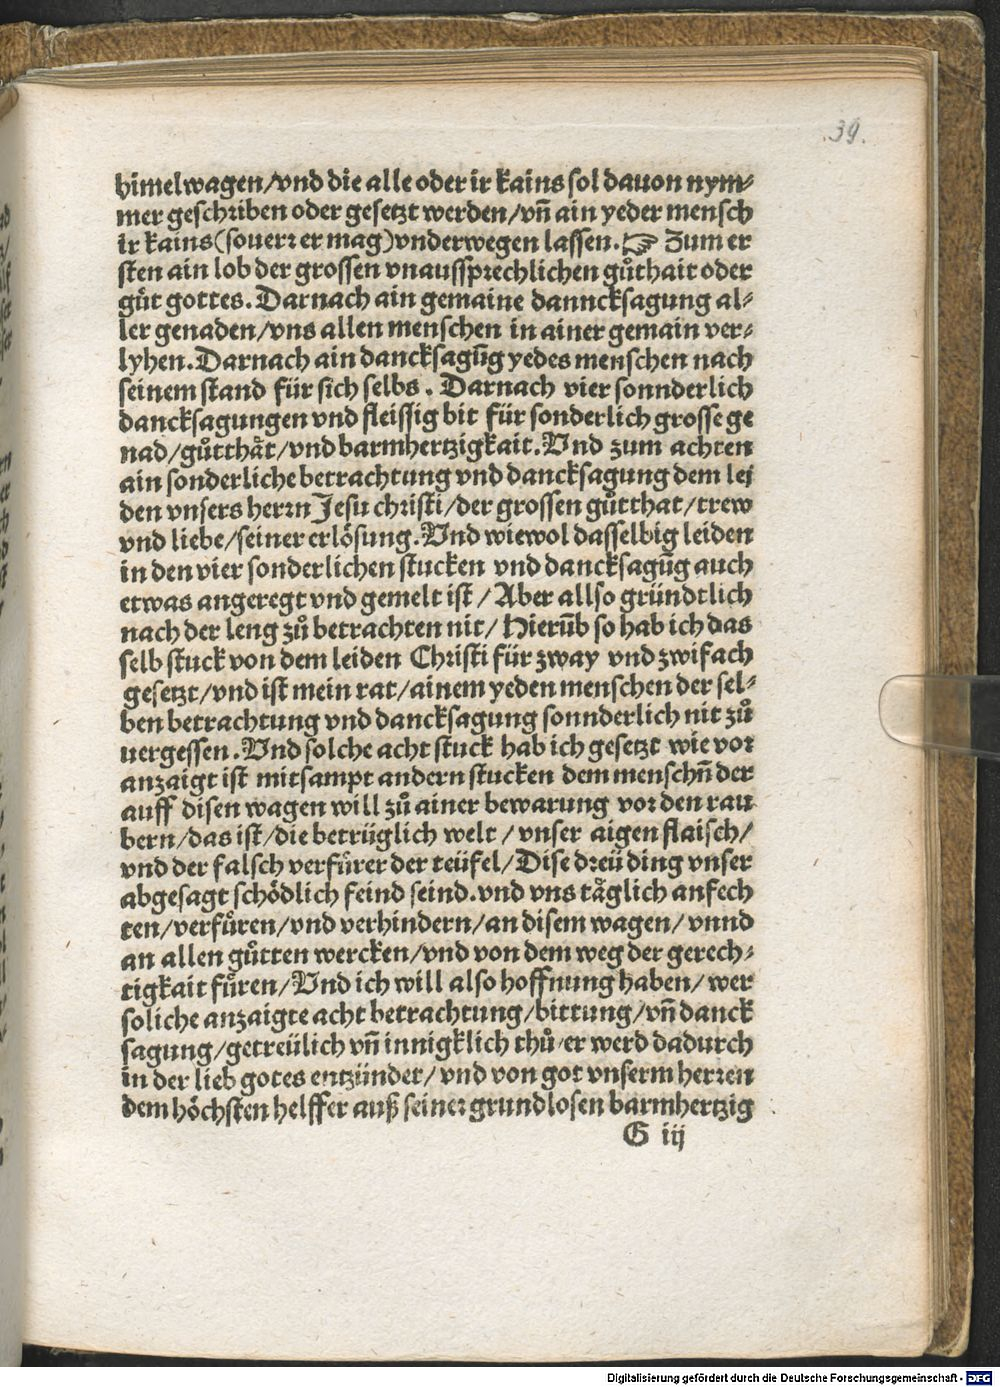 39.
himelwagen/vnd die alle oder ir kains sol dauon nym⸗
mer geschriben oder gesetzt werden/vn̄ ain yeder mensch
ir kains(souerr er mag)vnderwegen lassen.☞ Zum er
sten ain lob der grossen vnaussprechlichen gůthait oder
gůt gottes. Darnach ain gemaine danncksagung al⸗
ler genaden/vns allen menschen in ainer gemain ver⸗
lyhen. Darnach ain dancksagūg yedes menschen nach
seinem stand für sich selbs. Darnach vier sonnderlich
dancksagungen vnd fleissig bit für sonderlich grosse ge
nad/gůtthaͤt/vnd barmhertzigkait. Vnd zum achten
ain sonderliche betrachtung vnd dancksagung dem lei
den vnsers herrn Jesu christi/der grossen gůtthat/trew
vnd liebe/seiner erlösung. Vnd wiewol dasselbig leiden
in den vier sonderlichen stucken vnd dancksagūg auch
etwas angeregt vnd gemelt ist/Aber allso gründtlich
nach der leng zů betrachten nit/Hierūb so hab ich das
selb stuck von dem leiden Christi für zway vnd zwifach
gesetzt/vnd ist mein rat/ainem yeden menschen der sel⸗
ben betrachtung vnd dancksagung sonnderlich nit zů
uergessen. Vnd solche acht stuck hab ich gesetzt wie vor
anzaigt ist mitsampt andern stucken dem menschn̄ der
auff disen wagen will zů ainer bewarung vor den rau
bern/das ist/die betrüglich welt/vnser aigen flaisch/
vnd der falsch verfuͤrer der teüfel/Dise dreü ding vnser
abgesagt schödlich feind seind. vnd vns taͤglich anfech
ten/verfuͤren/vnd verhindern/an disem wagen/vnnd
an allen gůtten wercken/vnd von dem weg der gerech⸗
tigkait fuͤren/Vnd ich will also hoffnung haben/wer
soliche anzaigte acht betrachtung/bittung/vn̄ danck
sagung/getreülich vn̄ innigklich thů/er werd dadurch
in der lieb gotes entzündet/vnd von got vnserm herren
dem höchsten helffer auß seiner grundlosen barmhertzig
G iij
Digitalisierung gefördert durch die Deutsche Forschungsgemeinschaft - DFG